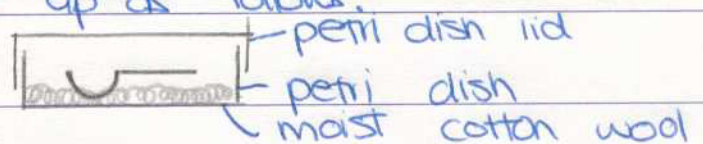 up as follows:
petri dish lid
petri dish
moist cotton wool